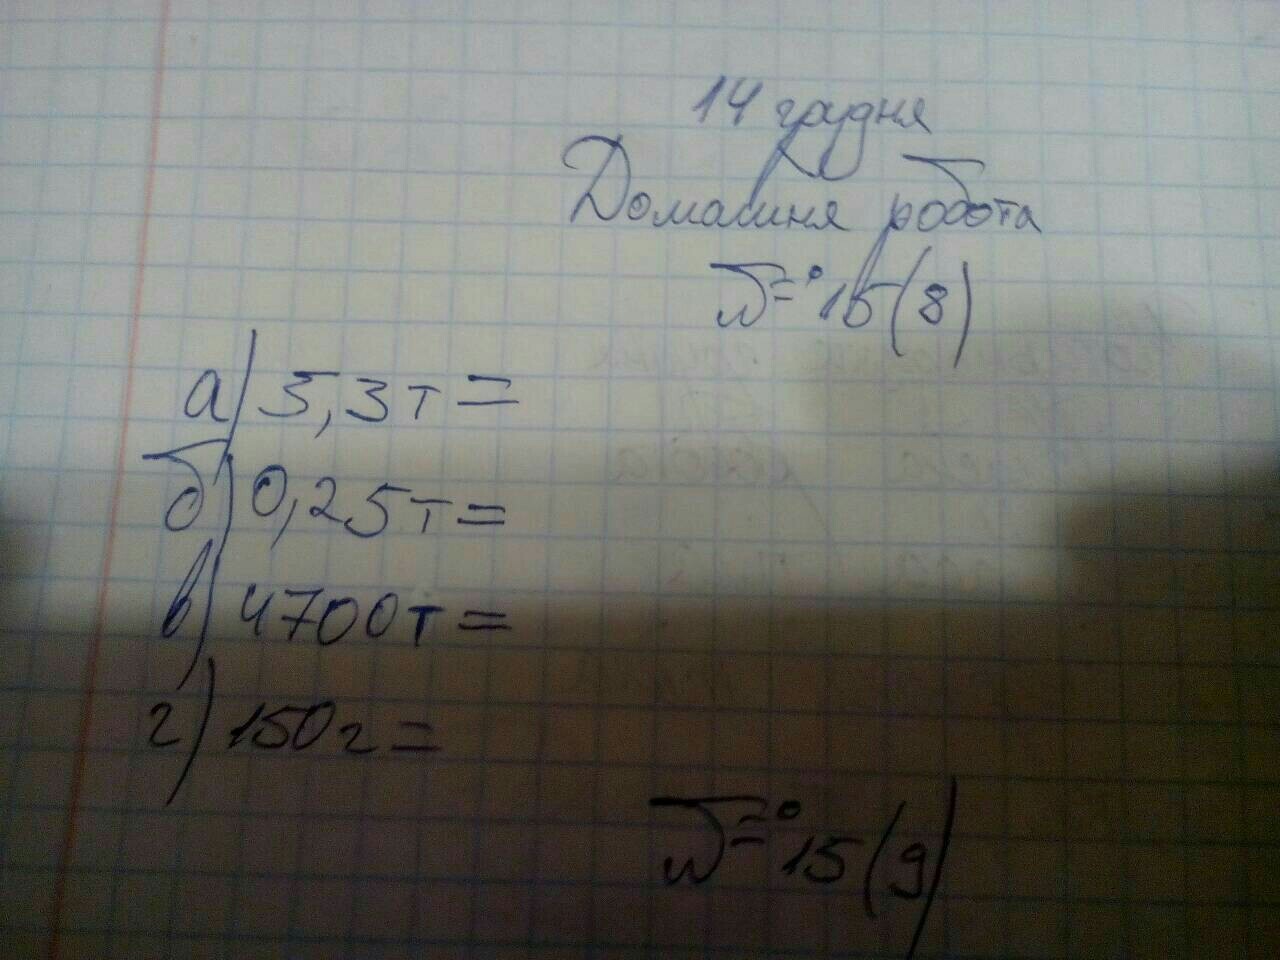 14 грудня
Домашня робота
№ 15(8)
а) 5,3т=
б) 0,25т=
в) 4700т=
г) 150г=
№ 15(9)